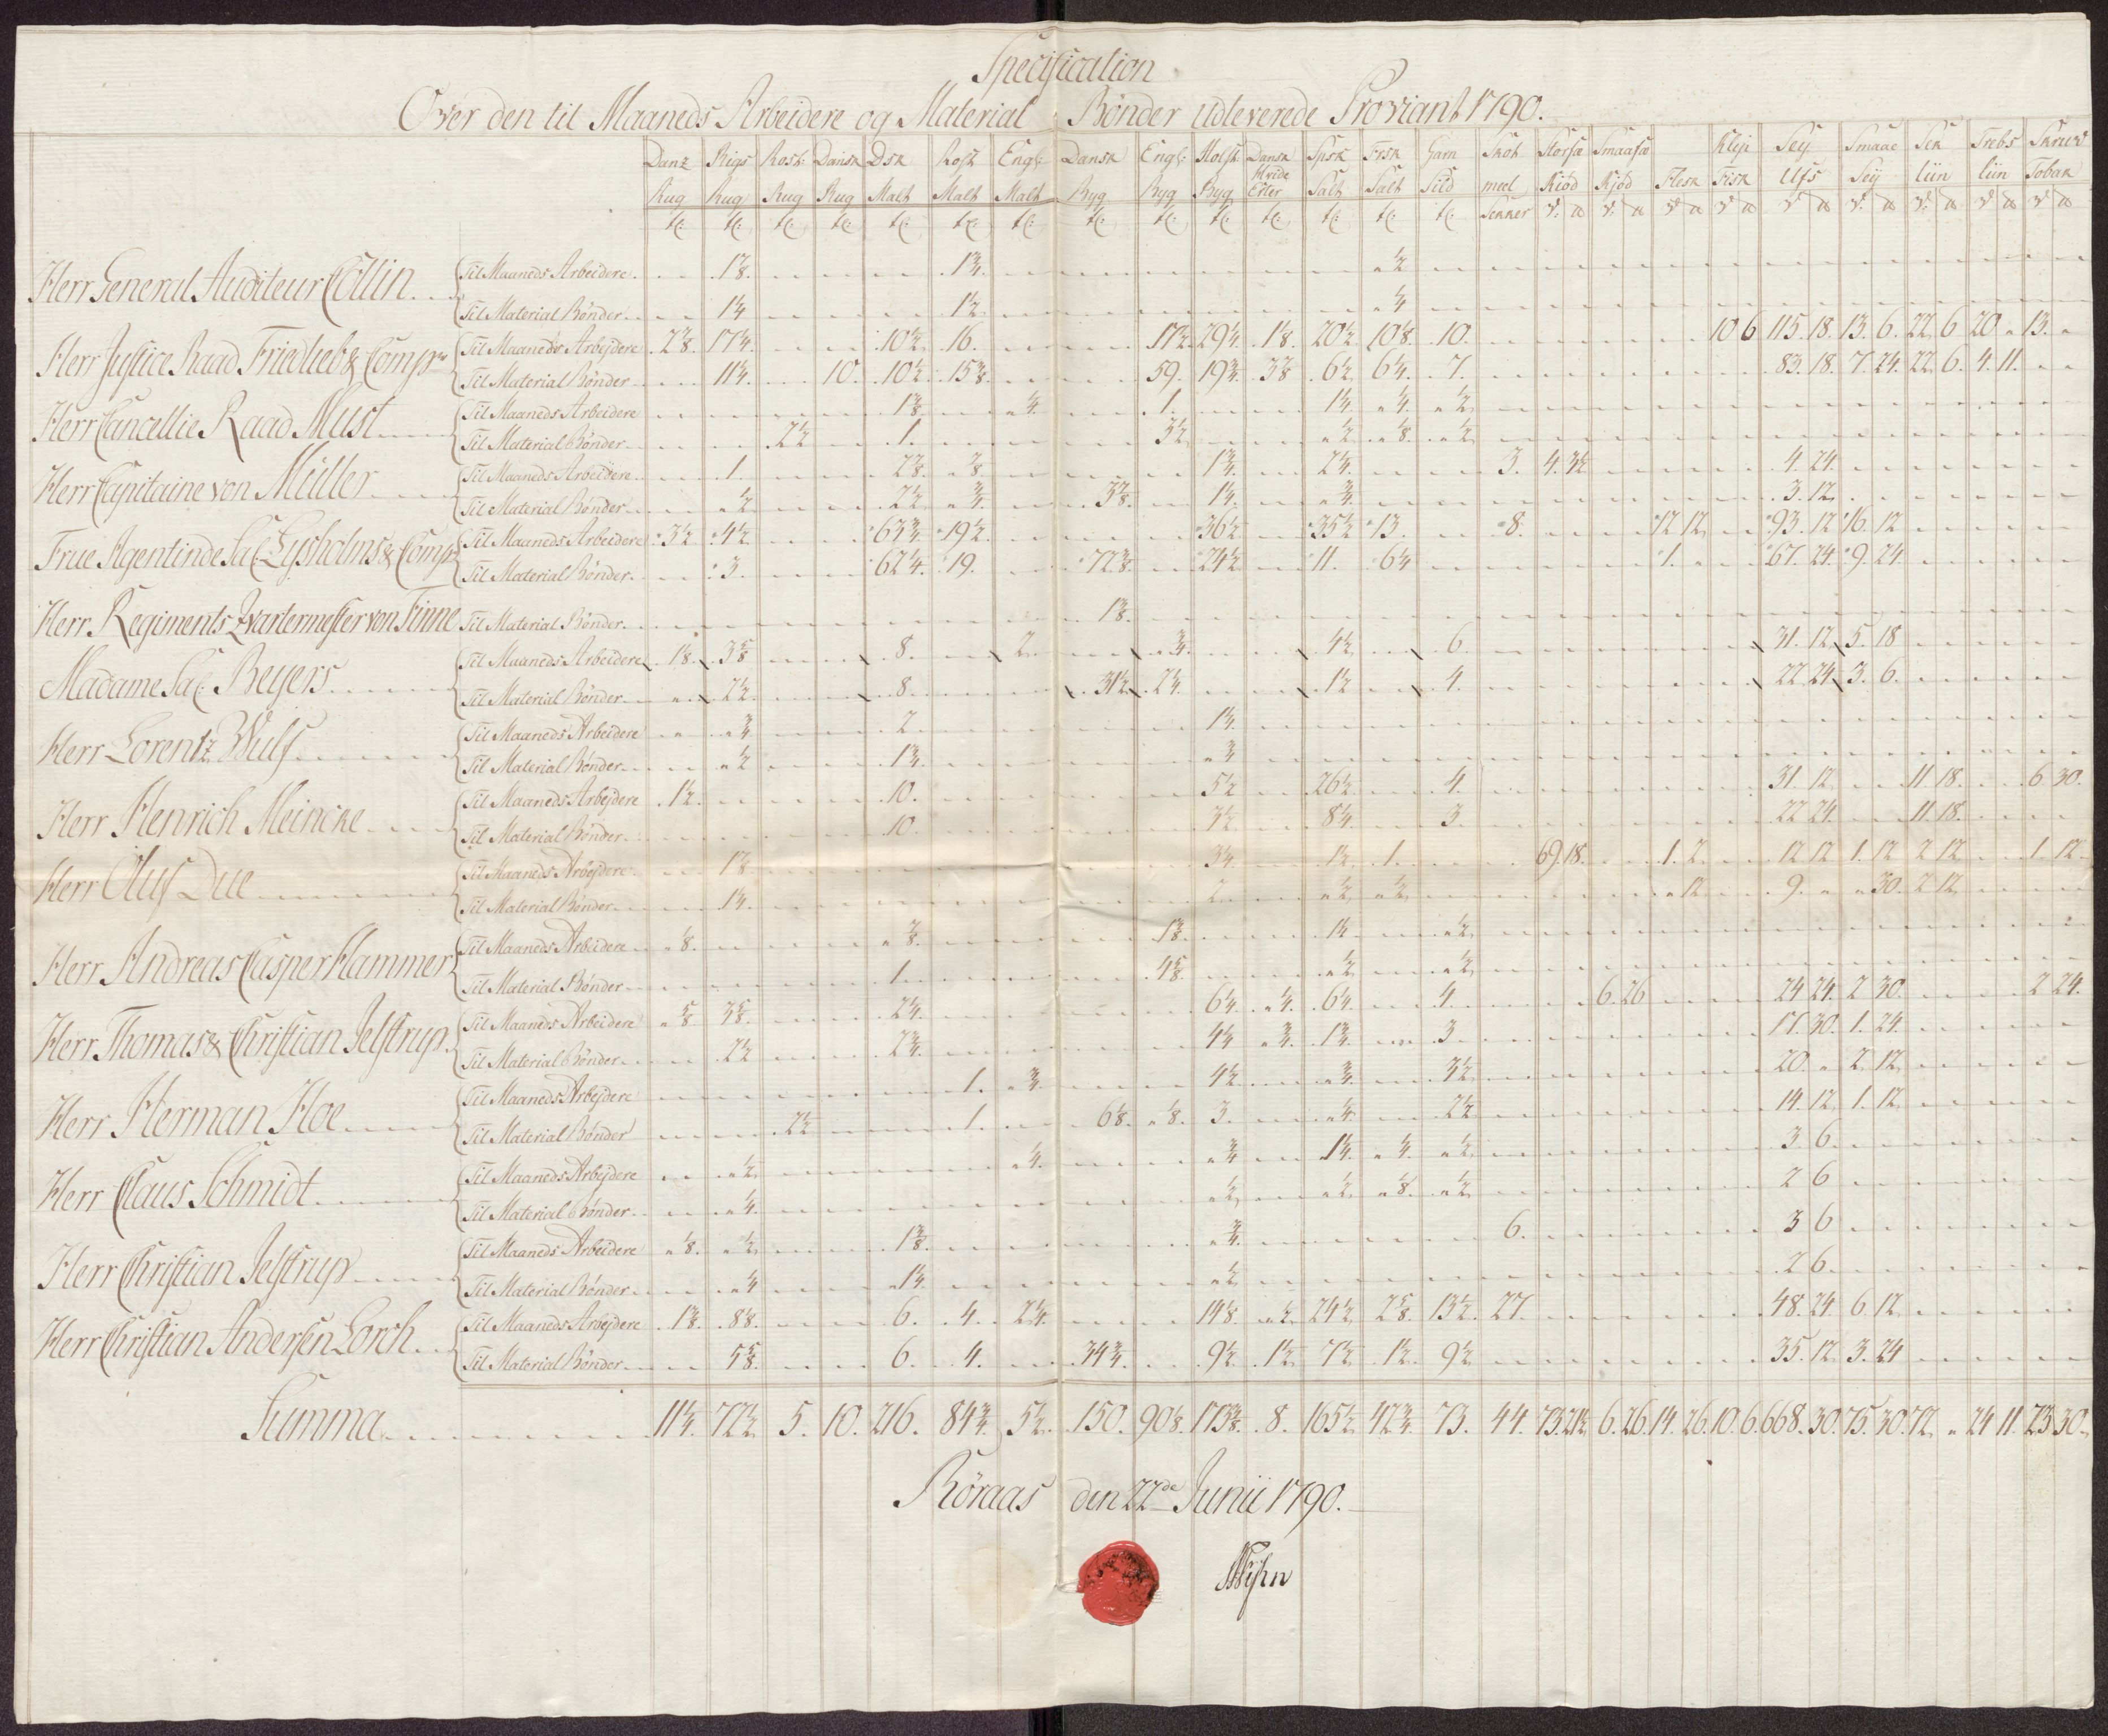 Specification
Over den til Maaneds Arbeidere og Material Bönder udleverede Proviant 1790.
Danz Rigs Rost: Dansk Dsk Rost Engl: Dansk Engl: Holst: Dansk Spsk Frsk Garn Skot Storsæ Smaasæ Klip Seÿ Smaae Sek Trebs Skrued
Rug Rug Rug Rug Malt Malt Malt Byg Byg Byg Hvide Erter Salt Salt Sild meel Kiöd Kjöd Flesk Fisk Ufs Seÿ liin liin Tobak
Herr General Auditeur Collin
Til Maaneds Arbeidere 1 7/8 1 3/4 1/2
Til Material Bönder 1 1/4 1 1/2 1/4
Herr Justice Raad Friedlieb & Comp
Til Maaneds Arbejdere 2 7/8 17 1/4 10 1/2 16. 17 1/2 29 1/4 1 1/8 20 1/2 10 1/8 10. 10 6 115. 18. 13. 6. 22 6 20 13.
Til Material Bönder 11 1/4 10. 10 1/2 15 3/8 59. 19 3/4 3 7/8 6 1/2 6 1/4 7. 83. 18. 7. 24. 22. 6. 4. 11.
Herr Cancellie Raad Must
Til Maaneds Arbeidere 1 3/8 1/4 1. 1 1/4 1/4 1/2
Til Material Bönder 2 1/2 1. 3 1/2 1/2 1/8 1/2
Herr Capitaine von Müller
Til Maaneds Arbeidere 1. 2 7/8 7/8 1 3/4 2 1/4 3. 4. 3 1/2 4. 24.
Til Material Bönder 1/2 2 1/2 3/4 3 7/8 1 1/4 3/4 3. 12
Frue Agentinde Sal Lysholms & Comp
Til Maaneds Arbeidere 3 1/2 4 1/2 63 3/4 19 1/2 36 1/2 35 1/2 13. 8. 12 12 93. 12 16. 12
Til Material Bönder 3. 62 1/4 19. 72 3/8 24 1/2 11. 6 1/4 1. 67. 24. 9. 24
Herr Regiments Qvartermester von Finne Til Material Bönder 1 3/8
Madame Sal Beyers
Til Maaneds Arbeidere 1 1/8 3 5/8 8. 2. 3/4 4 1/2 6 31. 12 5. 18
Til Material Bönder 2 1/2 8. 31 1/2 2 1/4 1 1/2 4. 22 24 3. 6.
Herr Lorentz Wulf
Til Maaneds Arbeidere 3/4 2. 1 1/4
Til Material Bönder 1/2 1 3/4 3/4
Herr Henrich Meincke
Til Maaneds Arbejdere 1 1/2 10. 5 1/2 26 1/2 4. 31. 12 11 18. 6 30.
Til Material Bönder 10. 3 1/2 8 1/4 3. 22 24. 11. 18.
Herr Oluf Due
Til Maaneds Arbejdere 1 7/8 3 1/4 1 1/2 1. 69. 18. 1. 2. 12 12 1. 12 2 12 1. 12
Til Material Bönder 1 1/4 2. 1/2 1/2 12 9. 30. 2 12
Herr Andreas Casper Hammer
Til Maaneds Arbeidere 1/8 7/8 1 3/8 1 1/2 1/2
Til Material Bönder 1. 4 5/8 1/2 1/2
Herr Thomas & Christian Jelstrup
Til Maaneds Arbeidere 5/8 3 5/8 2 1/4 6 1/4 1/4 6 1/4 4. 6. 26 24 24. 2 30. 2 24.
Til Material Bönder 2 1/2 2 3/4 4 1/4 3/4 1 3/4 3. 17. 30. 1. 24.
Herr Herman Hoe
Til Maaneds Arbejdere 1. 3/4 4 1/2 3/4 3 1/2 20. 2. 12
Til Material Bönder 2 1/2 1. 6 1/8 1/8 3. 1/4 2 1/2 14. 12 1. 12
Herr Claus Schmidt
Til Maaneds Arbejdere 1/2 1/4 3/4 1 1/4 1/4 1/2 3 6.
Til Material Bönder 1/4 1/2 1/2 1/8 1/2 2 6
Herr Christian Jelstrup
Til Maaneds Arbeidere 1/8 1/2 1 3/8 3/4 6. 3 6
Til Material Bönder 1/4 1 1/4 1/2 2 6
Herr Christian Andersen Lorch
Til Maaneds Arbejdere 1 3/8 8 1/8 6. 4. 2 1/4 14 1/8 1/2 24 1/2 2 5/8 13 1/2 27. 48. 24 6. 12
Til Material Bönder 5 5/8 6. 4. 34 3/4 9 1/2 1 1/2 7 1/2 1 1/2 9 1/2 35. 12. 3. 24
Summa 11 1/4 77 1/2 5. 10. 216. 84 3/4 5 1/2 150. 90 1/8 173 3/8 8. 165 1/2 42 3/4 73. 44. 73. 21 1/2 6. 26. 14. 26. 10. 6. 668. 30. 75. 30. 72 24 11. 23 30.
Röraas den 22de Junii 1790.